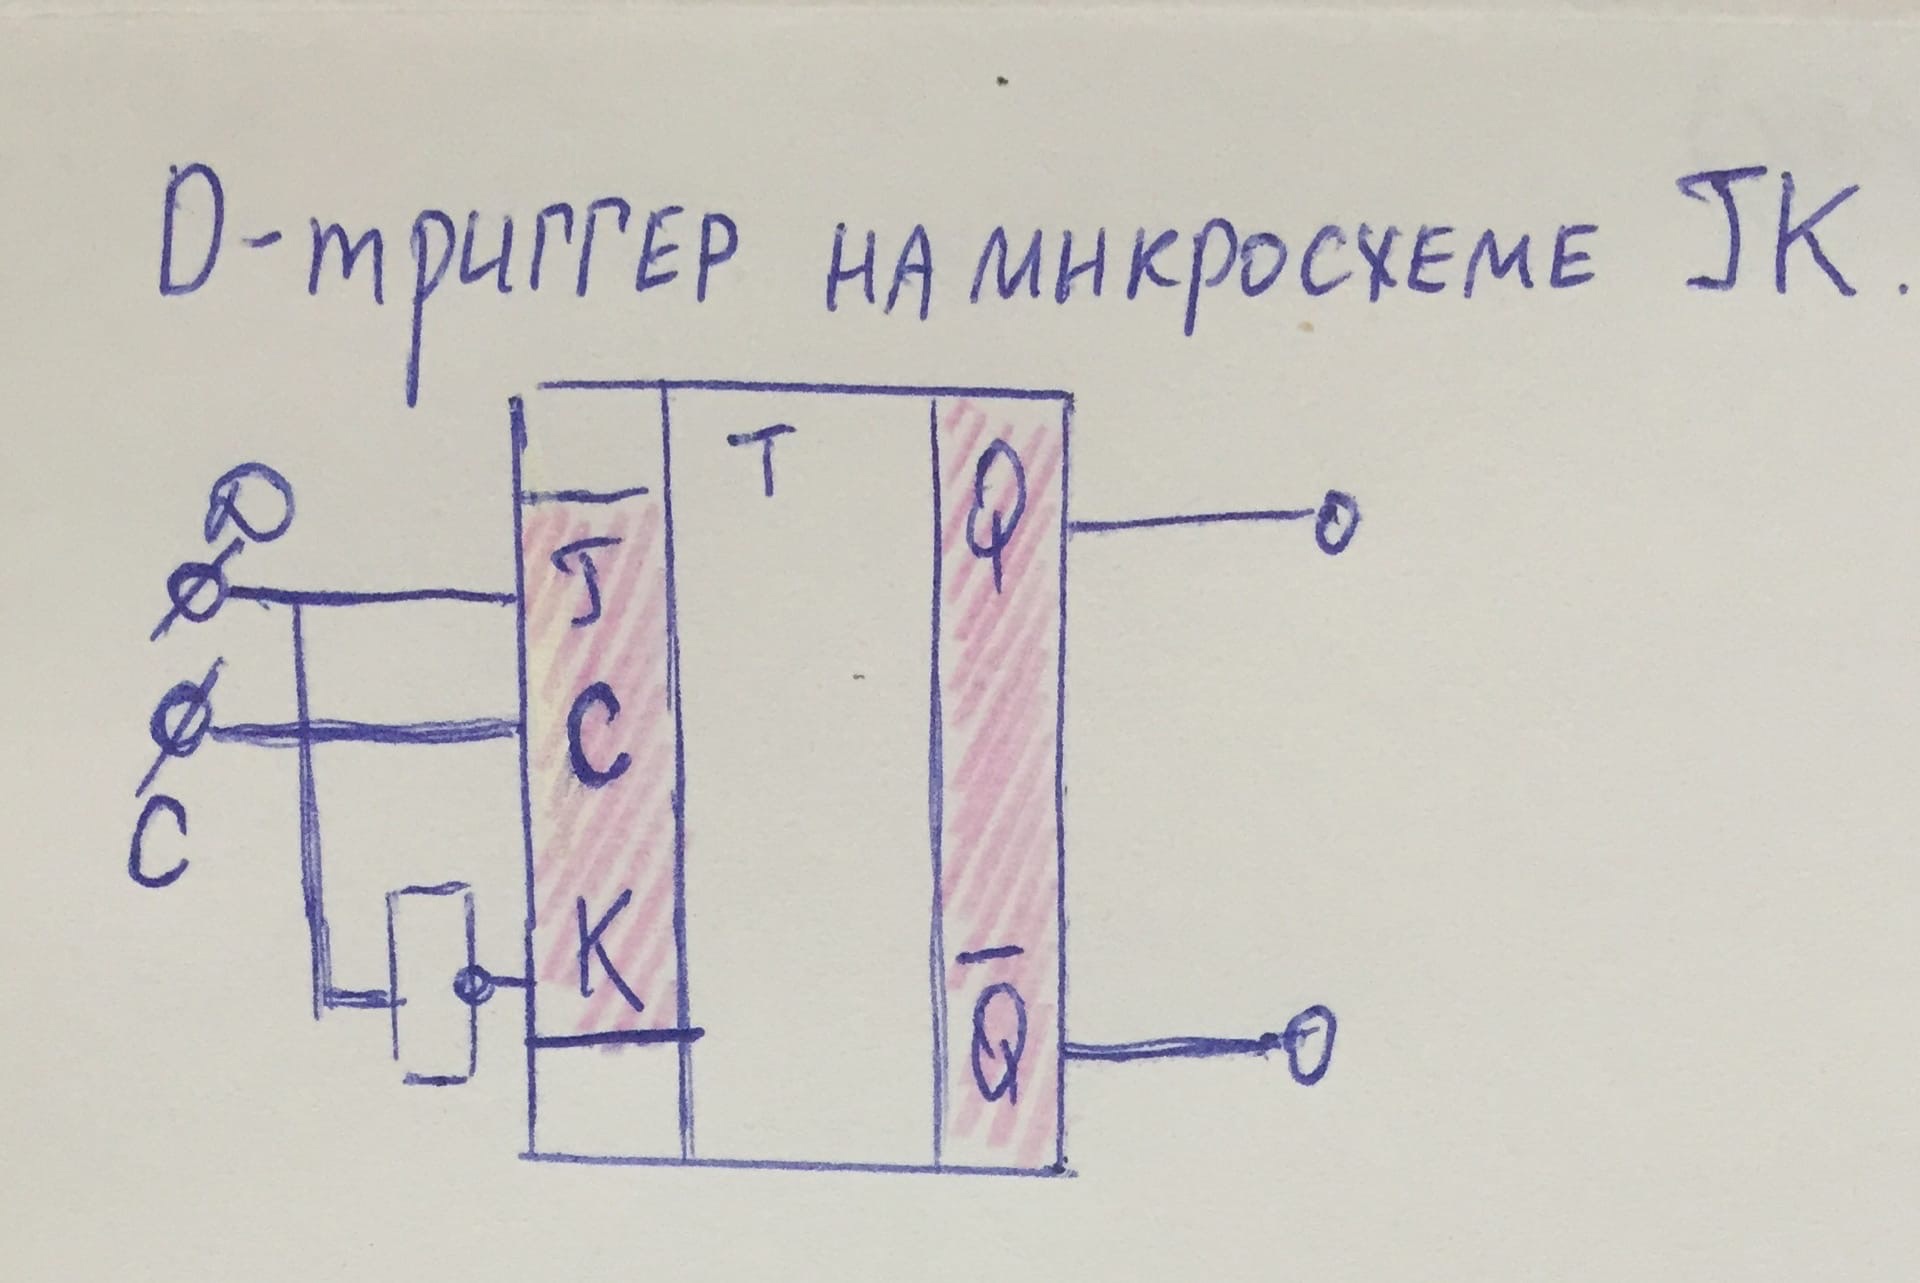 D-триггер на микросхеме JK.
T
Q
D
J
C
C
K
Q̅